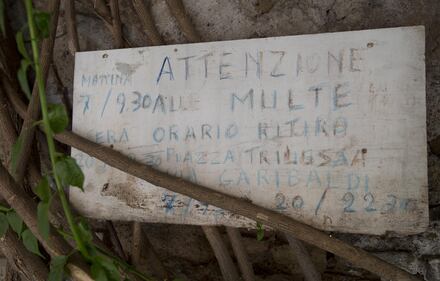 MATTINA ATTENZIONE
7/9.30 ALLE MULTE
SERA ORARIO RITIRO
PIAZZA TRILUSSA
GARIBALDI
20/22.30